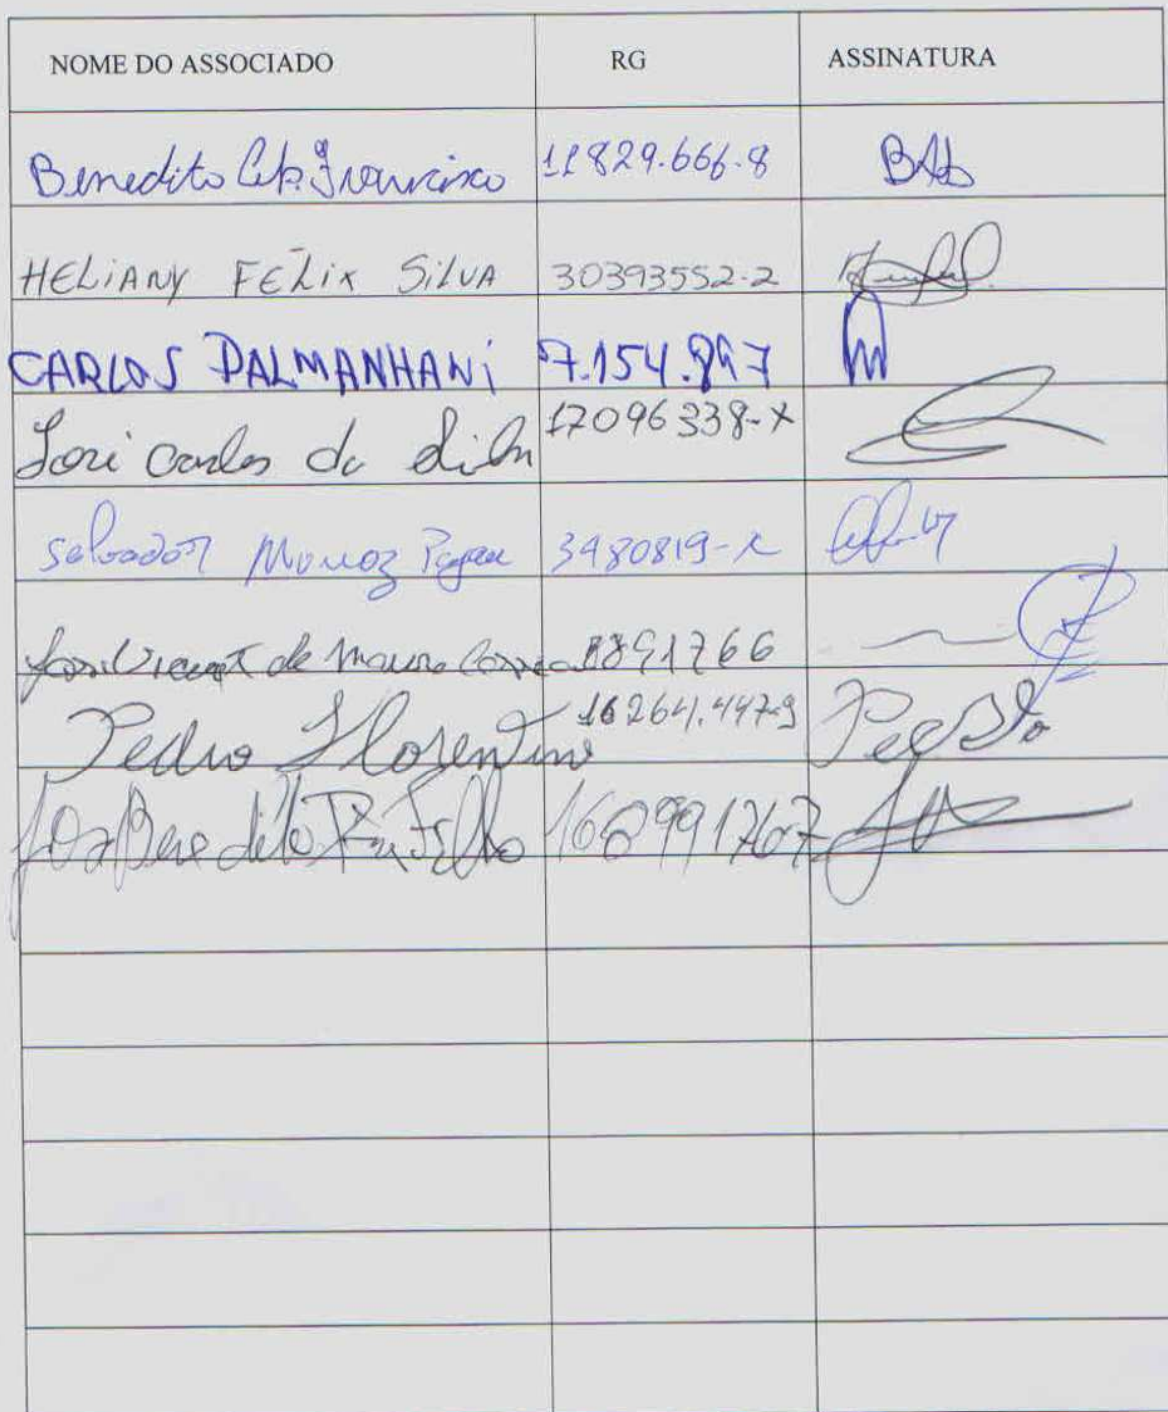 NOME DO ASSOCIADO RG ASSINATURA
Benedito Francisco 11829.666-8
HELIANY FÉLIX SILVA 30393552-2
CARLOS DALMANHANI 7.154.897
José Carlos da Silva 17096338-X
Salvador Munoz 3480819-
José Vicente de Moura Correa 8891766
Pedro Florentino 16264.447-9
José Benedito Filho 168991767